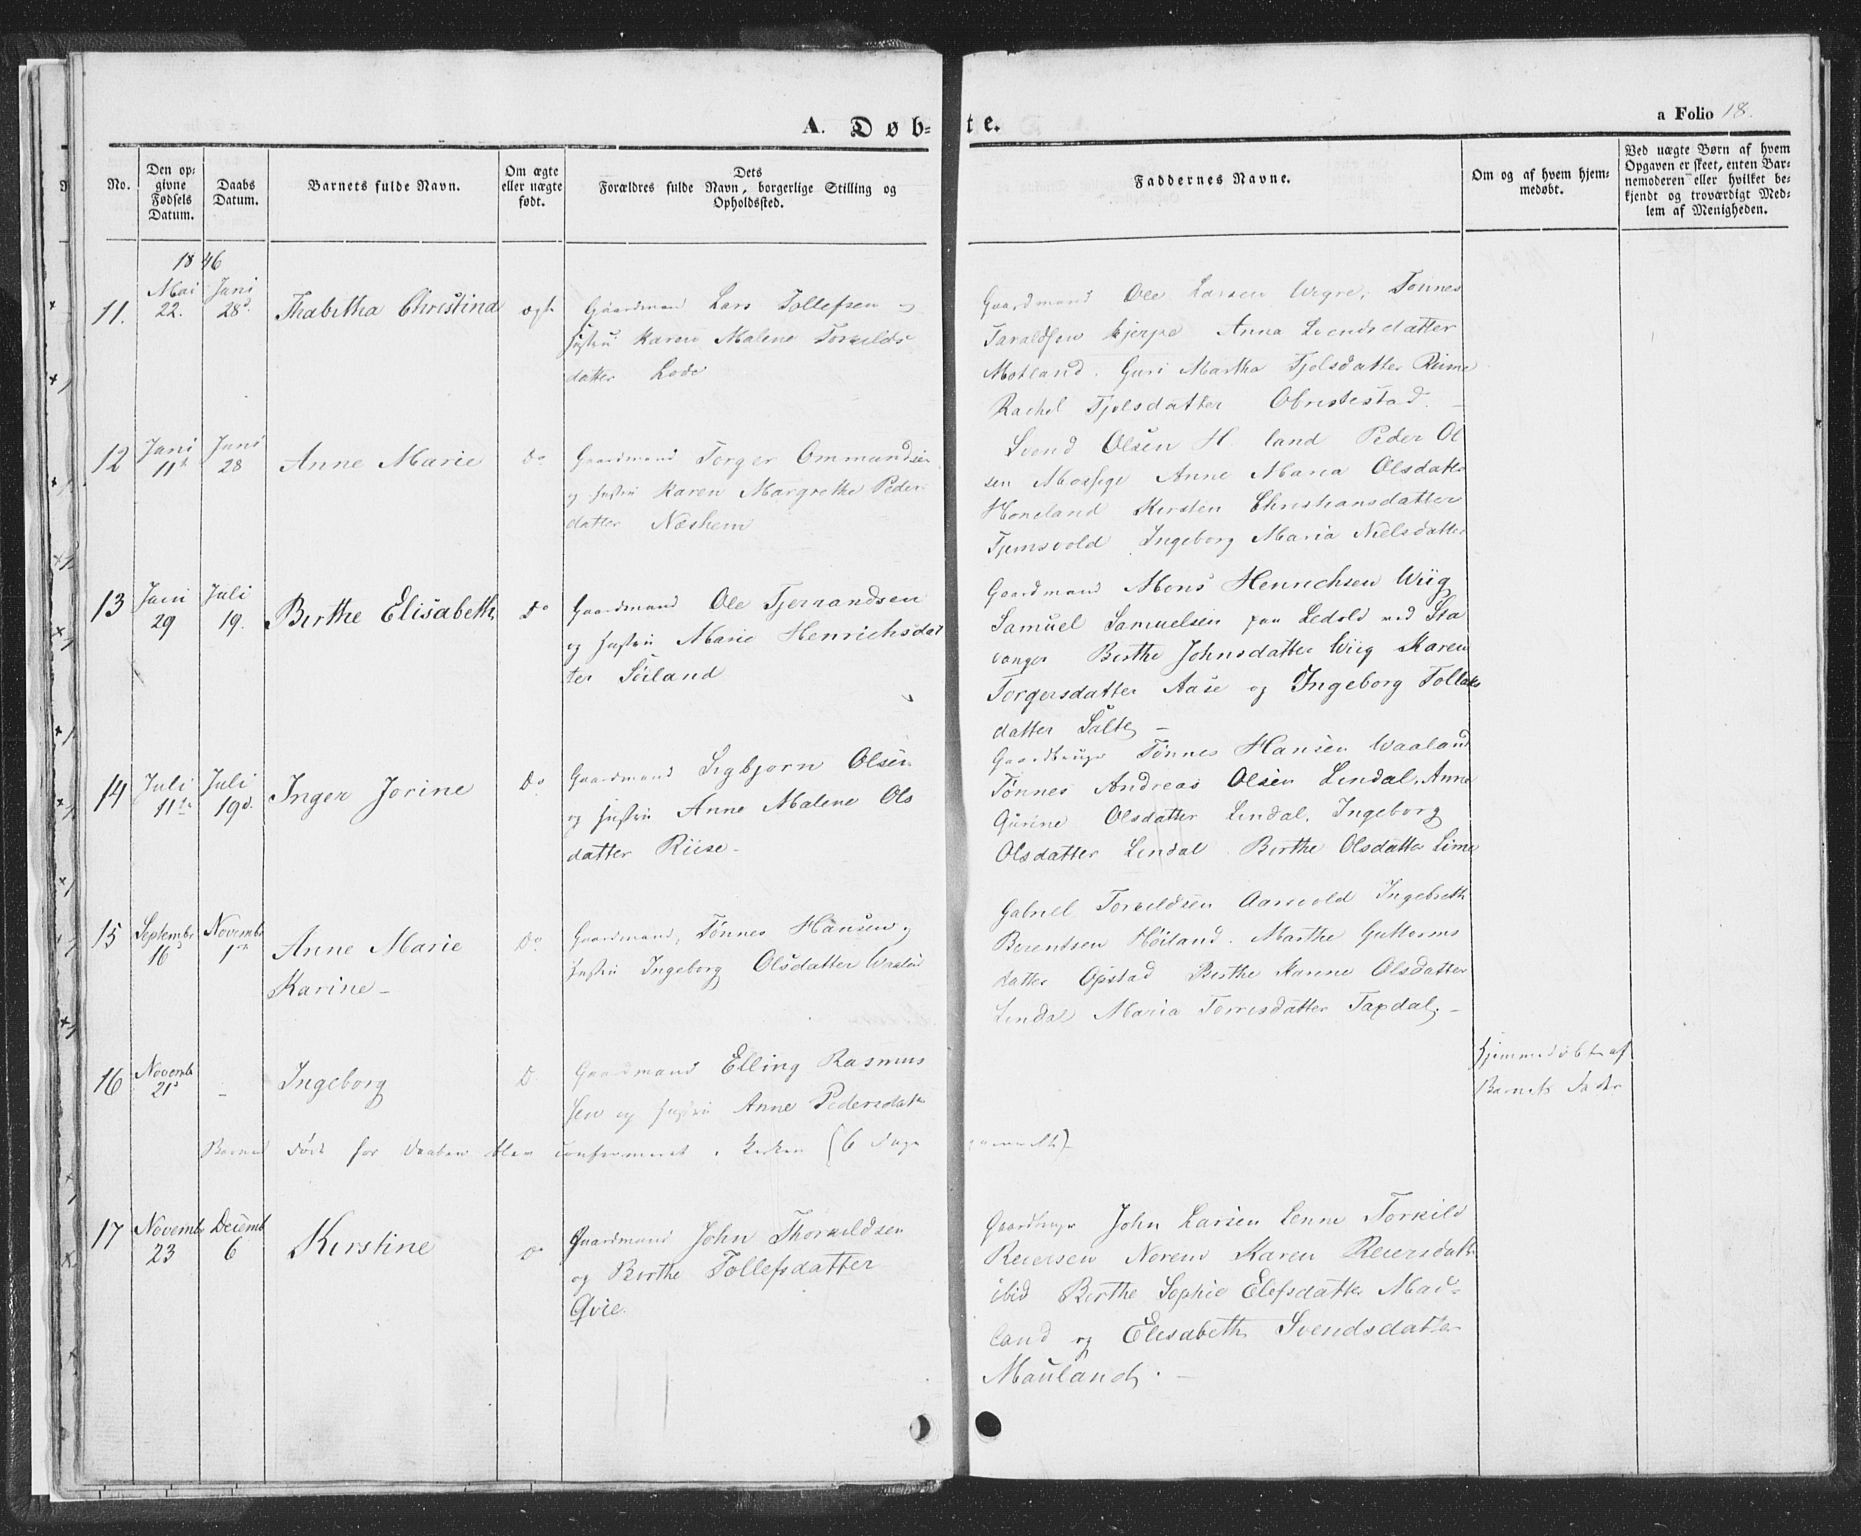 A. Døb-
te.
a Folio 18.
No.
Den op-
givne
Fødsels
Datum.
Daabs
Datum.
Barnets fulde Navn.
Om ægte
eller uægte
født.
Dets
Forældres fulde Navn, borgerlige Stilling og
Opholdssted.
Faddernes Navne.
Om og af hvem hjem-
medøbt.
Ved uægte Børn af hvem
Opgaven er skeet, enten Bar-
nemoderen eller hvilket be-
kjendt og troværdigt Med-
lem af Menigheden.
1846
11.
Mai
22.
Juni
28d
Thabitha Christina
ægte
Gaardmand Lars Tollefsen og
Hustru Karen Malene Torkilds
datter Lode
Gaardmand Ole Larsen Wigre, Tønnes
Taraldsen Kjerpe Anna Svendsdatter
Motland. Guri Martha Tjolsdatter Riime
Rachel Tjolsdatter Obrestestad. -
12
Juni
11te
Juni
28
Anne Marie
Do
Gaardmand Torger Ommundsen
og Hustru Karen Margrethe Peder
datter Næshem
Svend Olsen H land Peder Ol
sen Mossige Anne Maria Olsdatter
Honeland Kirsten Christiansdatter
Tjemsvold Ingeborg Maria Nielsdatter
13
Juni
29
Juli
19.
Birthe Elisabeth
Do
Gaardmand Ole Tjerrandsen
og Hustru Marie Henrichsdat
ter Søiland
Gaardmand Mons Henrichsen Wiig
Samuel Samuelsen paa Ledold ved Sta
vanger Birthe Johnsdatter Wiig Karen
Torgersdatter Aase og Ingeborg Tollaks
datter Salte -
14
Juli
11te
Juli
19d.
Inger Jorine
Do
Gaardmand Sigbjørn Olsen
og Hustru Anne Malene Ols
datter Riise -
Gaardbruger Tønnes Hansen Waaland
Tønnes Andreas Olsen Lendal, Anne
Gurine Olsdatter Lendal, Ingeborg
Olsdatter Lendal Birthe Olsdatter Lime
15
Septembr
16d
Novembr
1te
Anne Marie
Karine -
Do
Gaardmand, Tønnes Hansen og
Hustru Ingeborg Olsdatter Waaland
Gabriel Torkildsen Aarsvold Ingebreth
Berentsen Høiland. Marthe Guttorms
datter Opstad Birthe Karine Olsdatter
Lendal Maria Torrisdatter Taxdal. -
16
Novemb
21d
-
Ingeborg
Do
Gaardmand Elling Rasmus
sen og Hustru Anne Pedersdatter
Hjemmedøbt af
Barnets Fader
Barnet døde før Daaben blev confirmeret i Kirken (6 Dage
gammelt) -
17
Novemb
23
Decemb
6
Kirstine
Do
Gaardmand John Thorkildsen
og Birthe Tollefsdatter
Qvie.
Gaardbruger John Larsen Lenne Torkild
Reiersen Norem Karen Reiersdatter
ibid Birthe Sophie Elefsdatter Mad-
land og Elisabeth Svendsdatter
Mauland. -